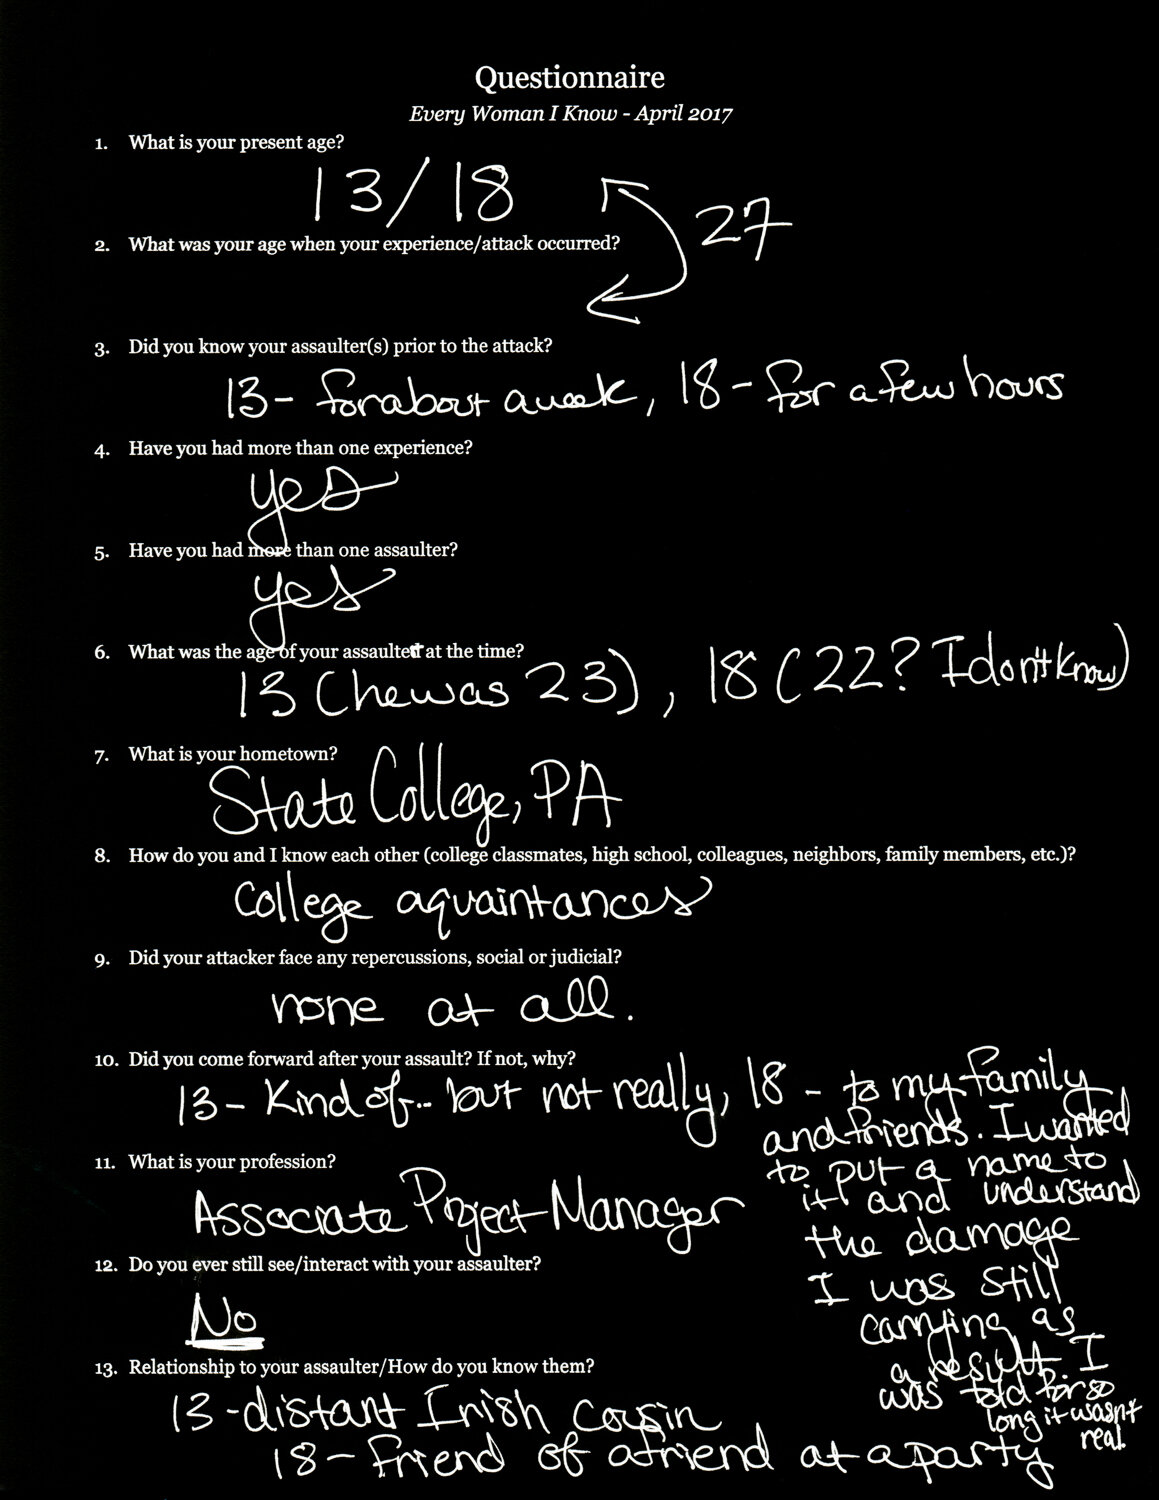 Questionnaire
Every Woman I Know - April 2017
1. What is your present age?
13/18
27
2. What was your age when your experience/attack occurred?
3. Did you know your assaulter(s) prior to the attack?
13- for about a week, 18 - for a few hours
4. Have you had more than one experience?
yes
5. Have you had more than one assaulter?
yes
6. What was the age of your assaulter at the time?
13 (he was 23), 18 (22? I don't know)
7. What is your hometown?
State College, PA
8. How do you and I know each other (college classmates, high school, colleagues, neighbors, family members, etc.)?
college aquaintances
9. Did your attacker face any repercussions, social or judicial?
none at all.
10. Did you come forward after your assault? If not, why?
13- Kind of.. but not really, 18 - to my family
and friends. I wanted
to put a name to
it and understand
the damage
I was still
carrying as
a result. I
was told for so
long it wasn't
real.
11. What is your profession?
Associate Project Manager
12. Do you ever still see/interact with your assaulter?
No
13. Relationship to your assaulter/How do you know them?
13 -distant Irish cousin
18 - friend of a friend at a party